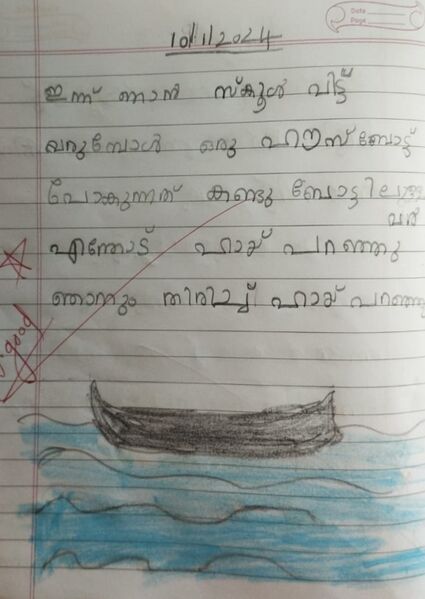 Date
Page
10/1/2024
ഇന്ന് ഞാൻ സ്കൂൾ വിട്ട്
വരുമ്പോൾ ഒരു ഹൗസ് ബോട്ട്
പോകുന്നത് കണ്ടു ബോട്ടിലുള്ള
വർ
എന്നോട് ഹായ് പറഞ്ഞു
ഞാനും തിരിച്ച് ഹായ് പറഞ്ഞു
good